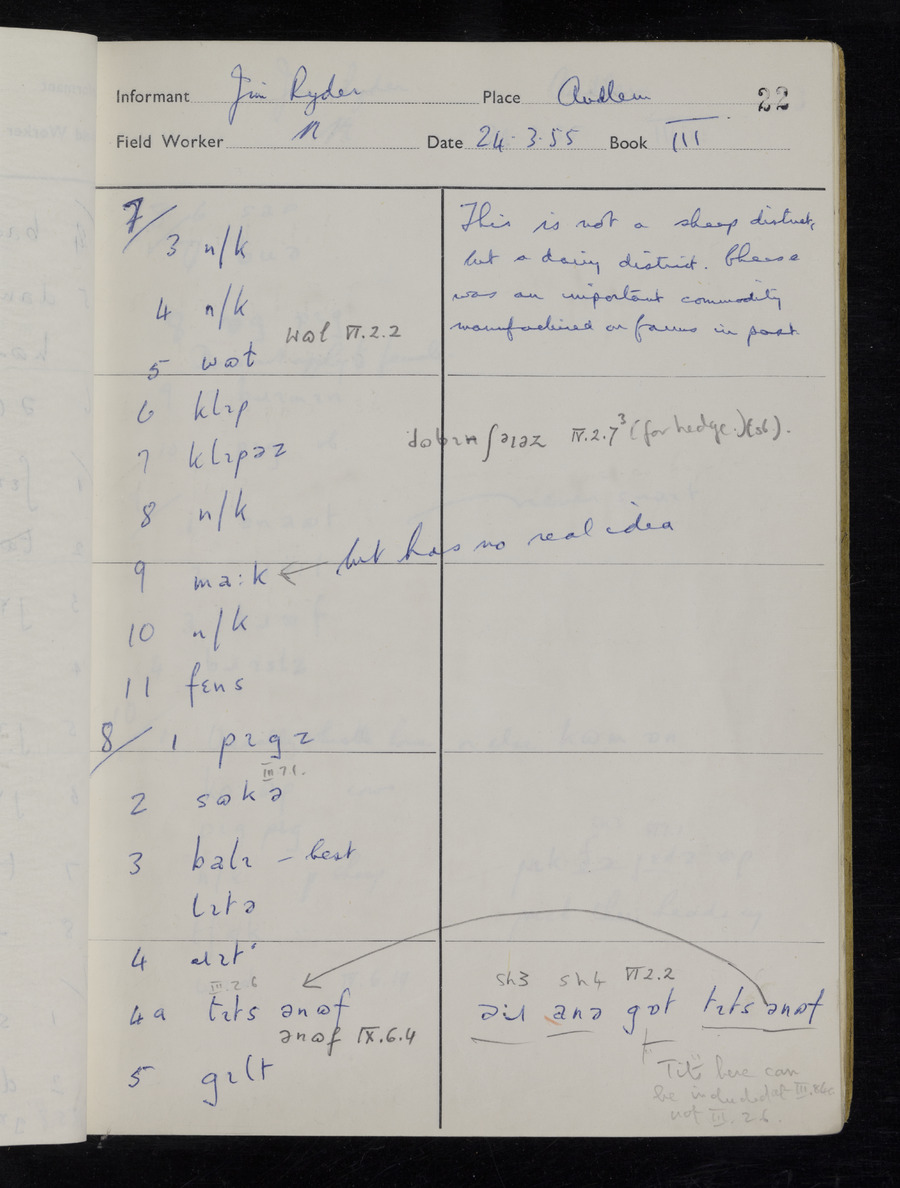 Informant Jim Ryder Place Audlem 22
Field Worker N Date 24.3.55 Book III
7/
3 n/k
4 n/k
wɷl VI.2.2
5 wɷt
6 klɪp
7 klɪpəz
8 n/k
9 ma:k ← but has no real idea
10 n/k
11 fens
8/ 1 pɪgɪ
III 7 1.
2 sɷkə
3 balɪ – best
lɪtə
4
III.2.6
4a tɪts ənɷf
ənɷf IX.6.4
5 gɪlt
This is not a sheep district,
but a dairy district. Cheese
was an important commodity
manufactured on farms in past
ʃəɪəz IV.2.7³ (for hedge.)
sh3 sh4 VI 2.2
anə gɒt tɪts ənɷf
Tits here can
be included at III.
not III. 2 6.